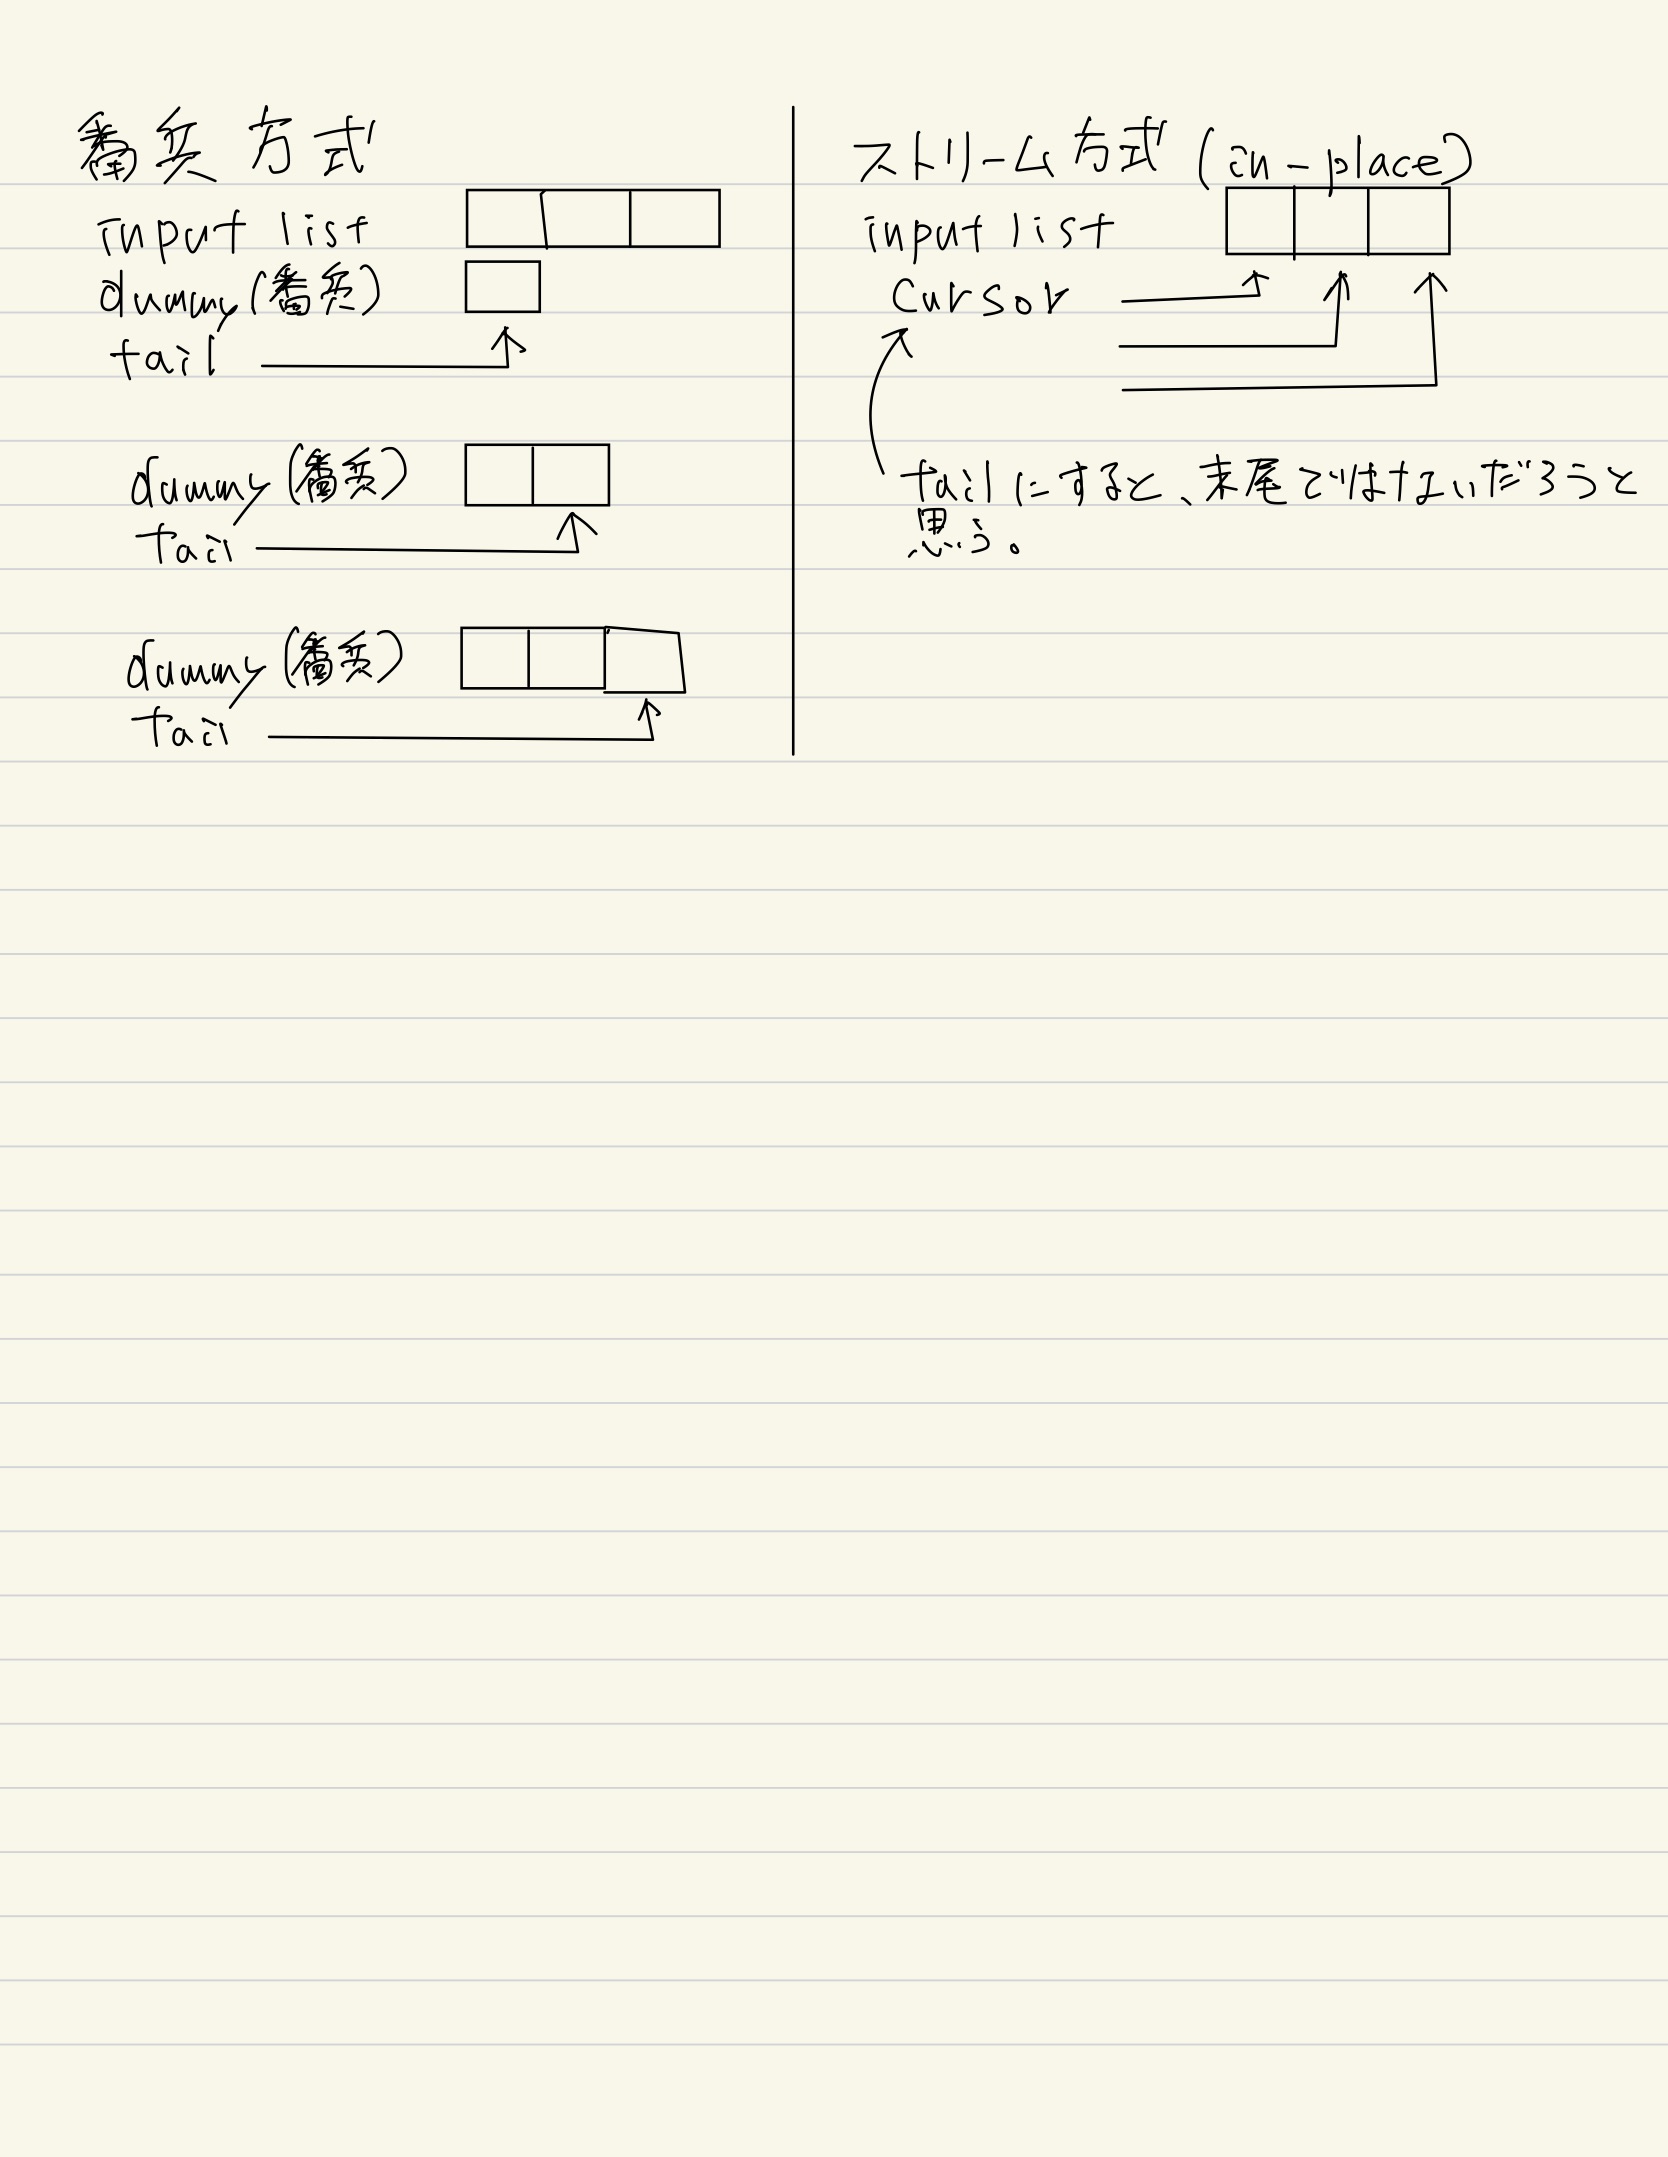 番兵方式
input list
dummy(番兵)
tail
dummy(番兵)
tail
dummy(番兵)
tail
ストリーム方式(in-place)
input list
cursor
tailにすると、末尾ではないだろうと
思う。